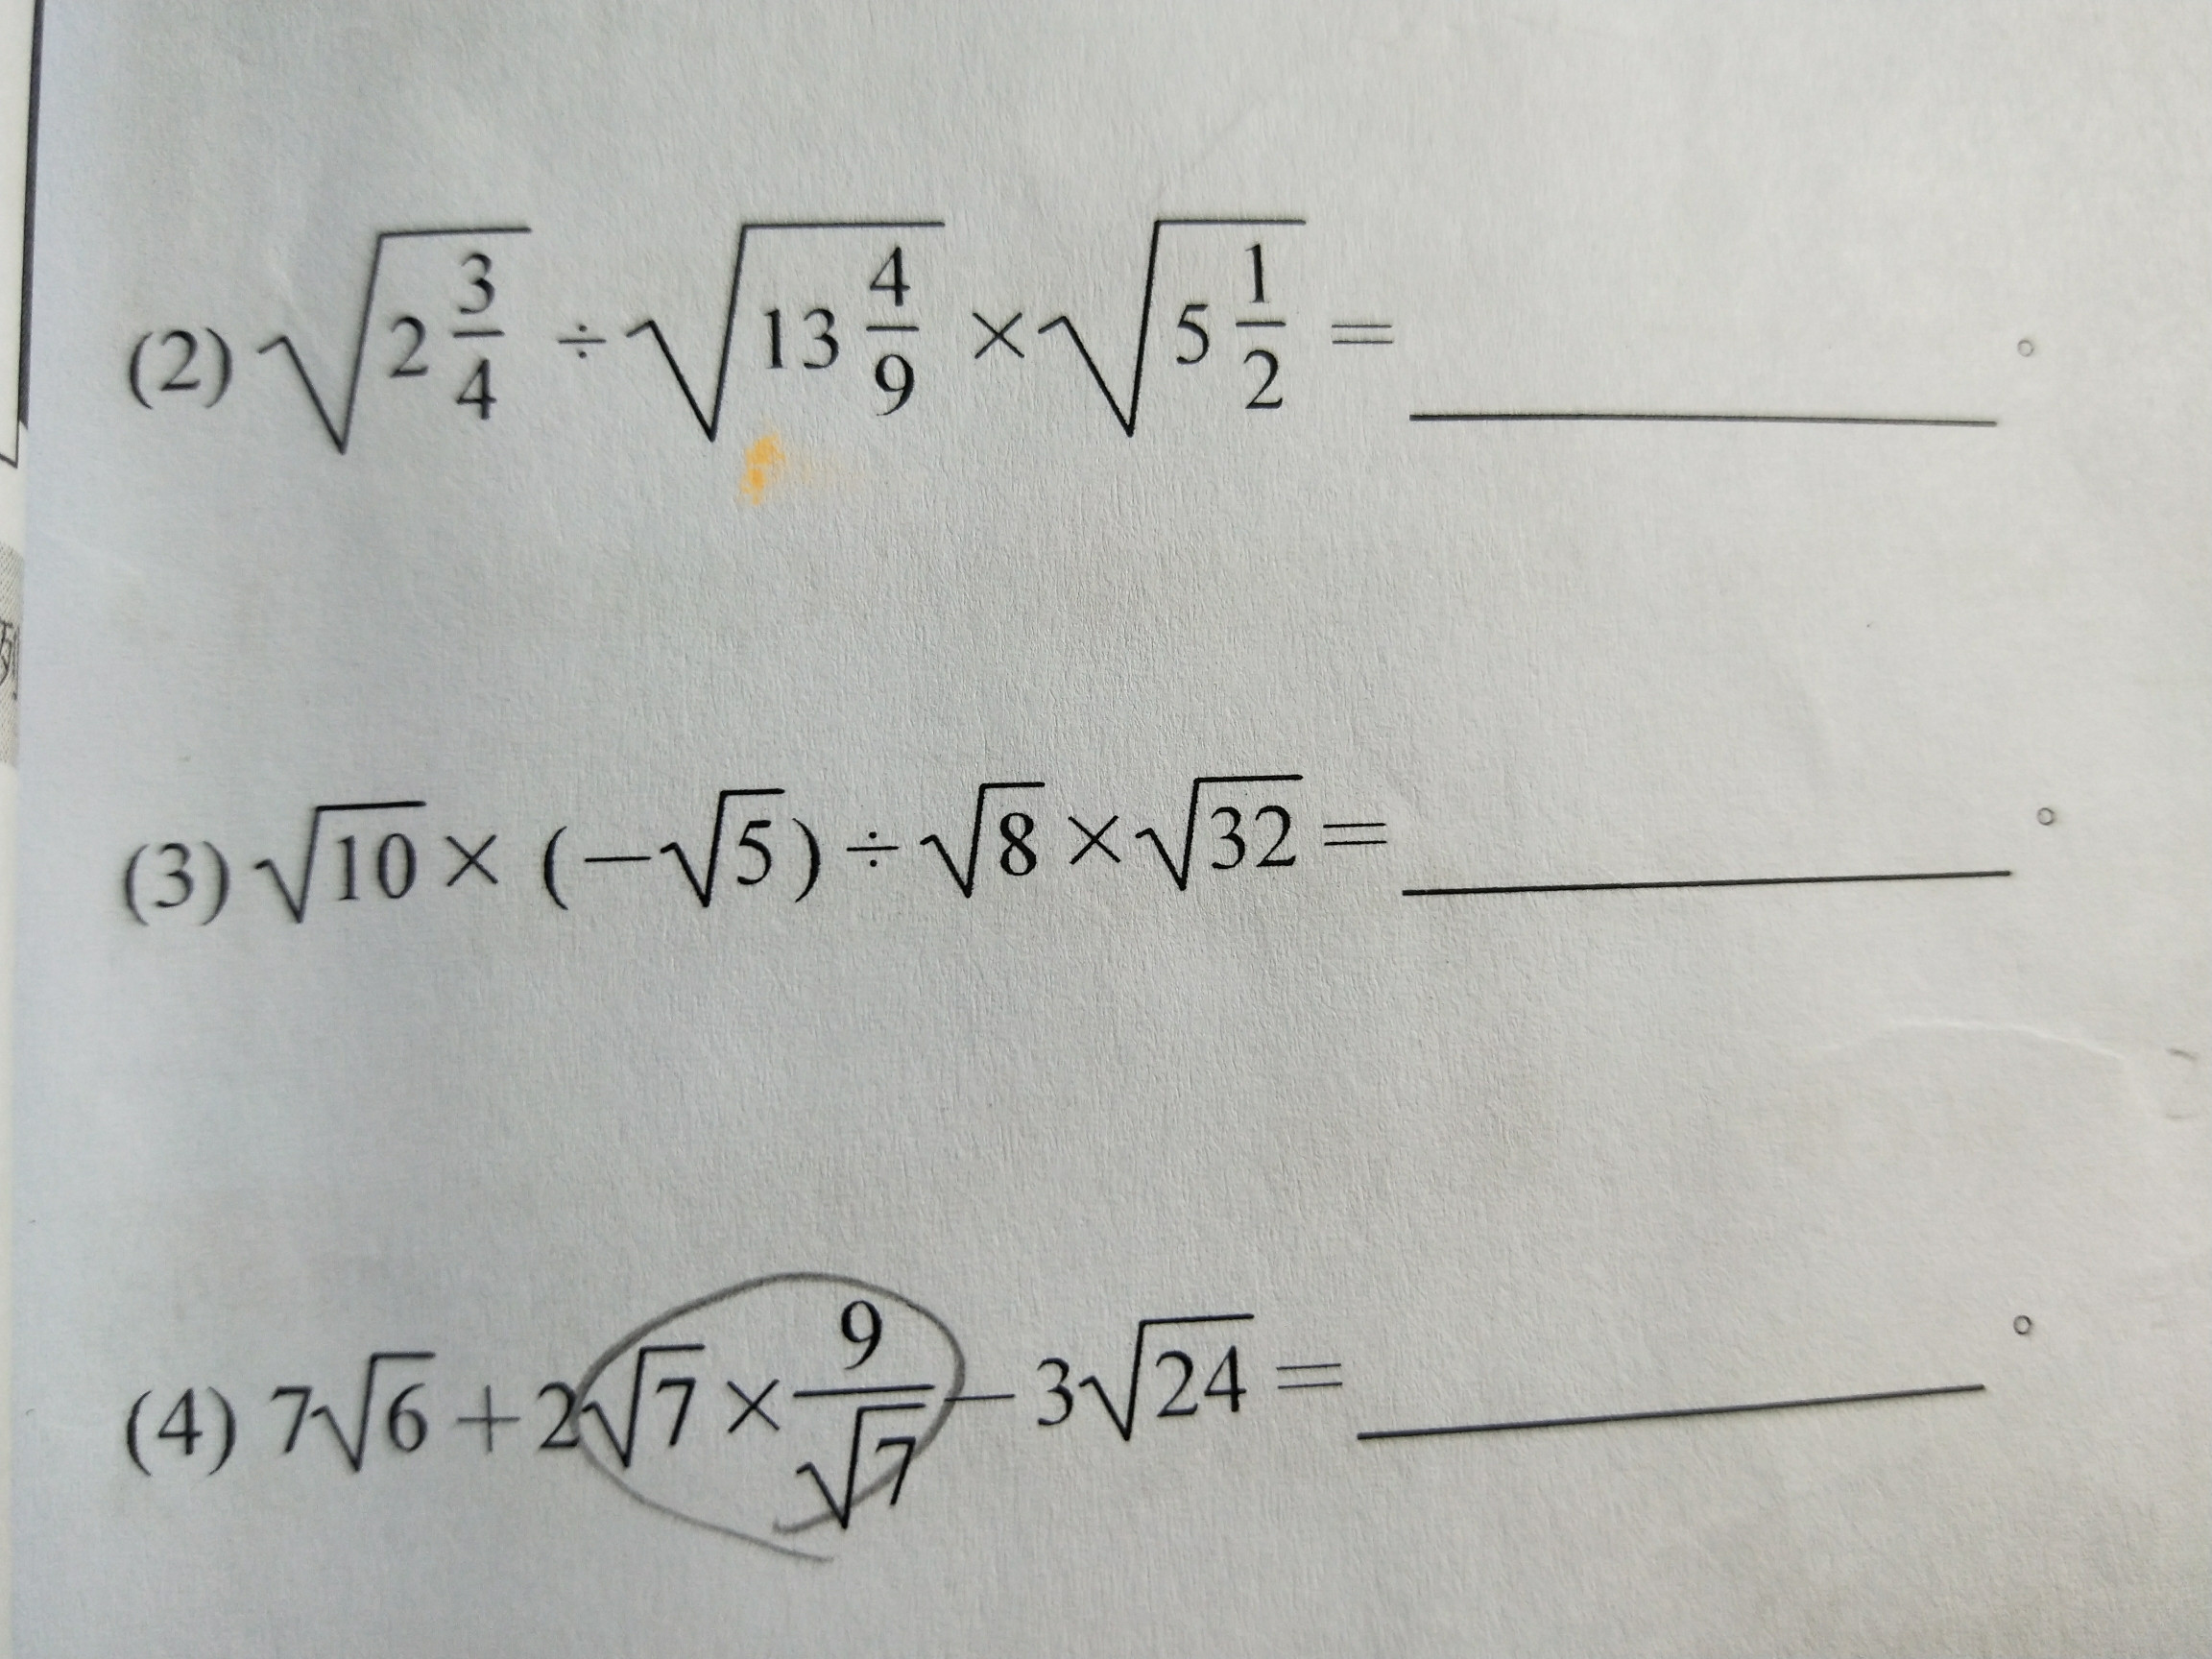 (2) √(2 3/4) ÷ √(13 4/9) × √(5 1/2) = ________。
(3) √10 × (−√5) ÷ √8 × √32 = ________。
(4) 7√6 + 2√7 × 9/√7 − 3√24 = ________。